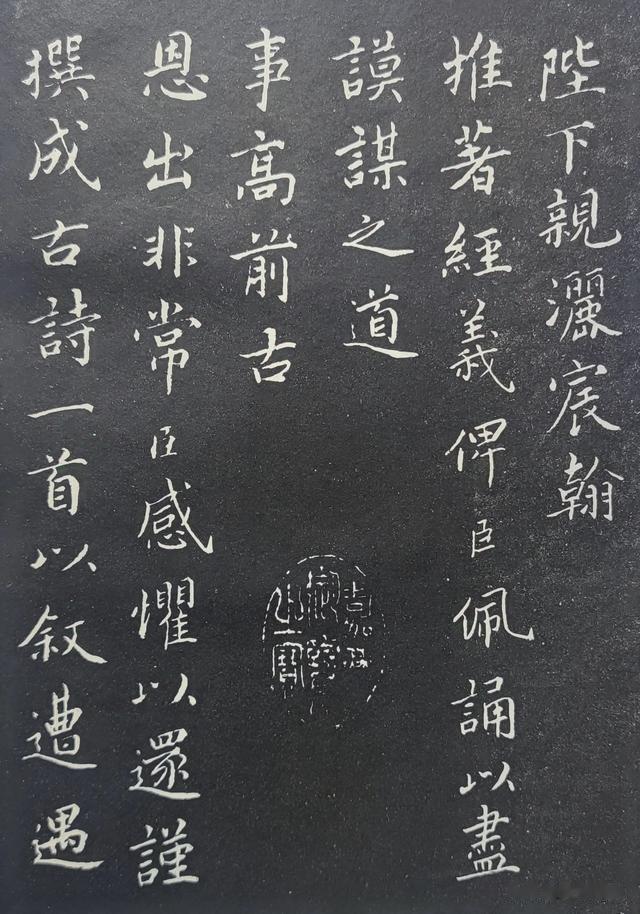 陛下親灑宸翰
推著經義俾臣佩誦以盡
謨謀之道
事高前古
恩出非常臣感懼以還謹
撰成古詩一首以叙遭遇